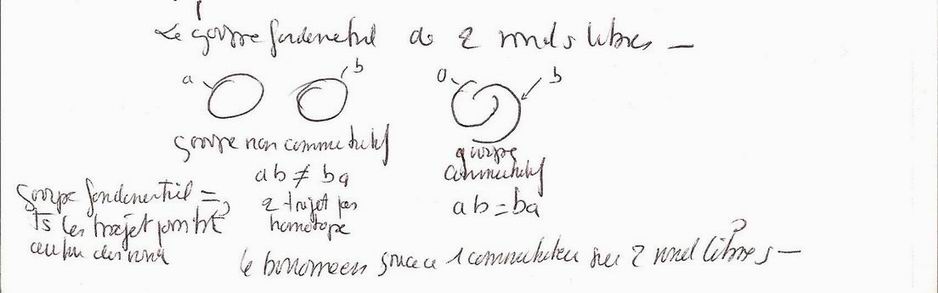 Le groupe fondamental de 2 ronds libres —
a b a b
groupe non commutatif
groupe
commutatif
ab ≠ ba
ab = ba
2 trajet pas
homotope
groupe fondamental =
ts les trajet possible
autour des rond
le borroméen grace a 1 commutateur sur 2 rond libres —